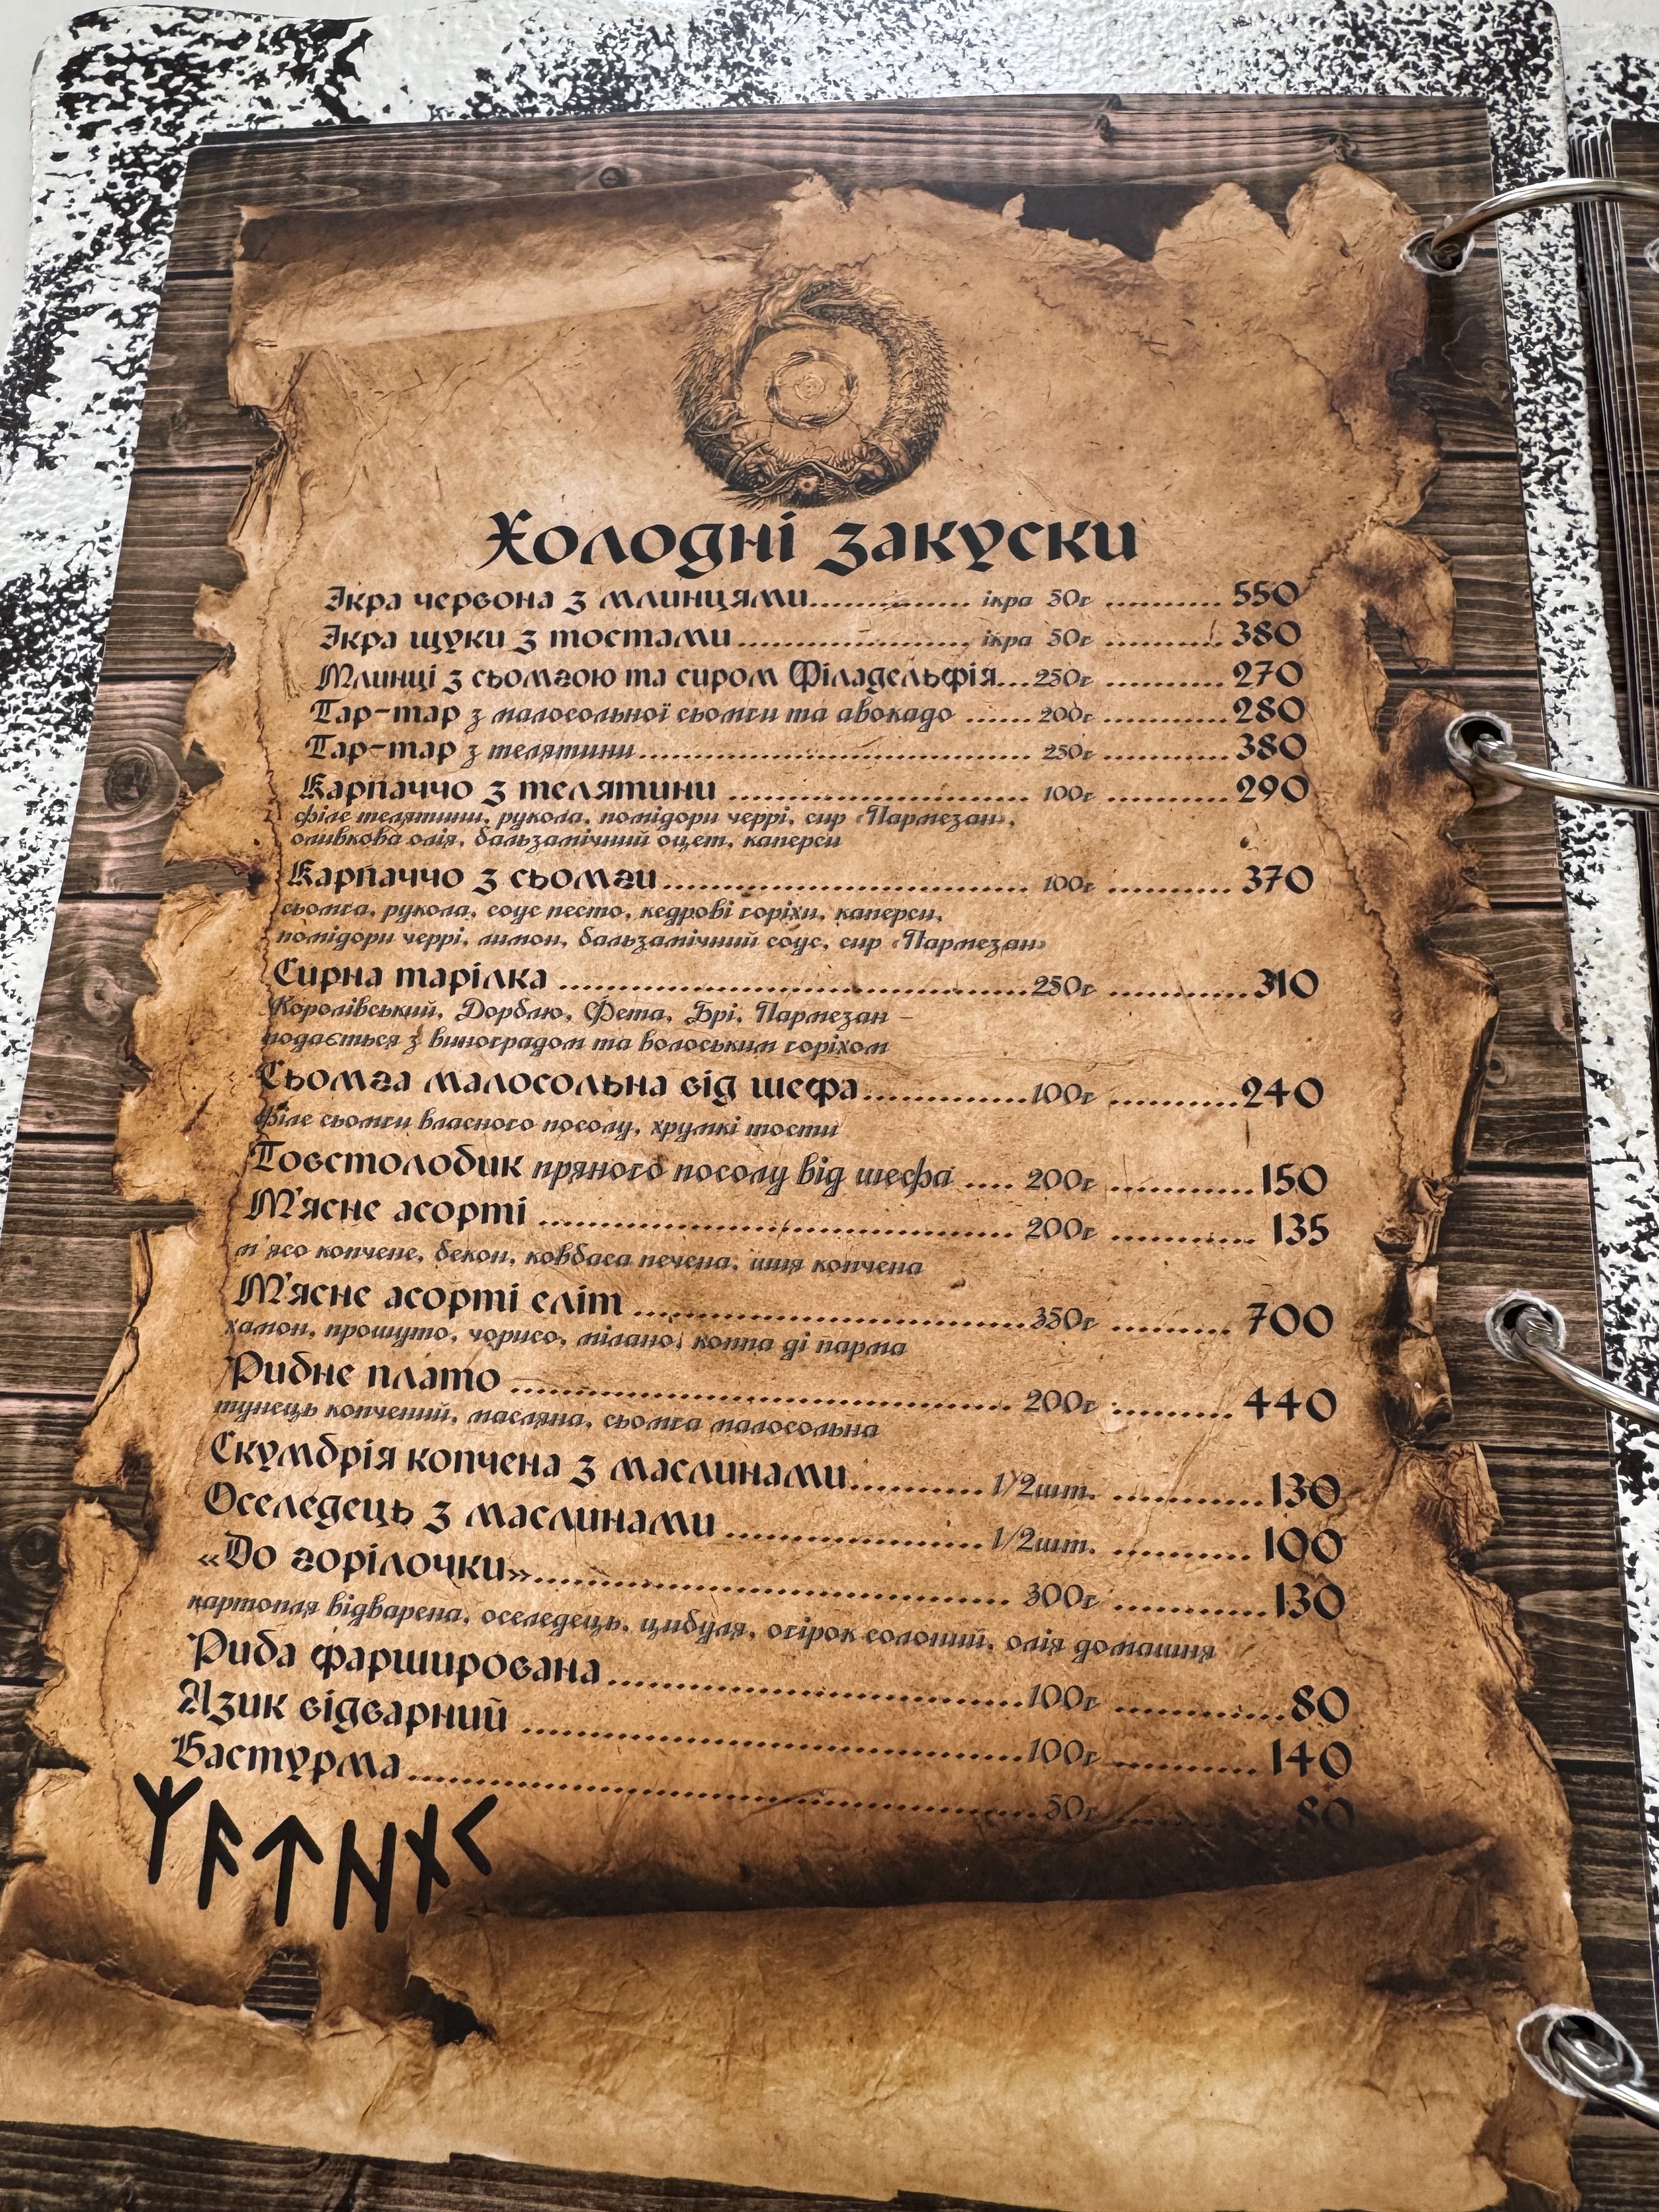 Холодні закуски
Ікра червона з млинцями.................. ікра 50г ........... 550
Ікра щуки з тостами.......................... ікра 50г ........... 380
Млинці з сьомгою та сиром Філадельфія...250г ........... 270
Тар-тар з малосольної сьомги та авокадо ...... 200г ........... 280
Тар-тар з телятини.......................................... 250г ........... 380
Карпаччо з телятини ................................ 100г ........... 290
філе телятини, рукола, помідори черрі, сир «Пармезан»,
оливкова олія, бальзамічний оцет, каперси
Карпаччо з сьомги....................................... 100г ........... 370
сьомга, рукола, соус песто, кедрові горіхи, каперси,
помідори черрі, лимон, бальзамічний соус, сир «Пармезан»
Сирна тарілка ..................................................250г ............310
Королівський, Дорблю, Фета, Брі, Пармезан –
подається з виноградом та волоським горіхом
Сьомга малосольна від шефа..................100г ............240
філе сьомги власного посолу, хрумкі тости
Товстолобик пряного посолу від шефа .... 200г ............150
М'ясне асорті .............................................. 200г ............ 135
м'ясо копчене, бекон, ковбаса печена, шия копчена
М'ясне асорті еліт .......................................350г .......... 700
хамон, прошуто, чорисо, мілано, коппа ді парма
Рибне плато ................................................. 200г .......... 440
тунець копчений, масляна, сьомга малосольна
Скумбрія копчена з маслинами............. 1/2шт. ............130
Оселедець з маслинами .........................1/2шт. ........... 100
«До горілочки».............................................. 300г ............130
картопля відварена, оселедець, цибуля, огірок солоний, олія домашня
Риба фарширована.......................................100г .............80
Язик відварний ...............................................100г ............140
Бастурма..........................................................50г .............80
ᛉᚨᛏᚺᚾᚲ